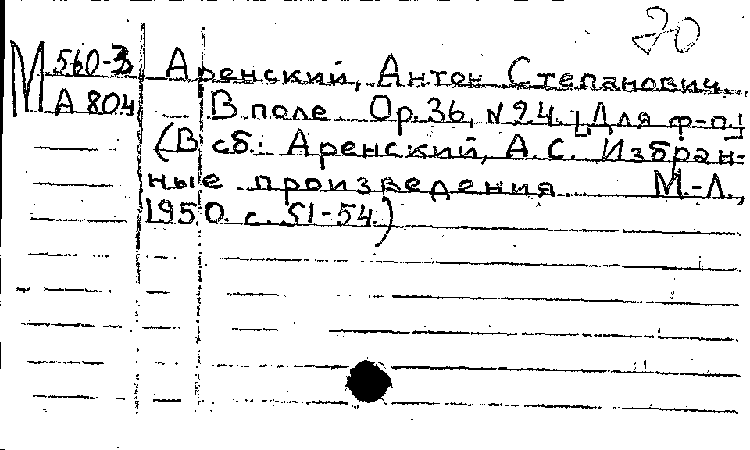 70
М 560-3 Аренский, Антон Степанович.
А 804 В поле. Ор. 36, N 24. [Для ф-п.]
(В сб.: Аренский, А.С. Избран-
ные произведения. М.-Л.,
1950. с. 51-54.)